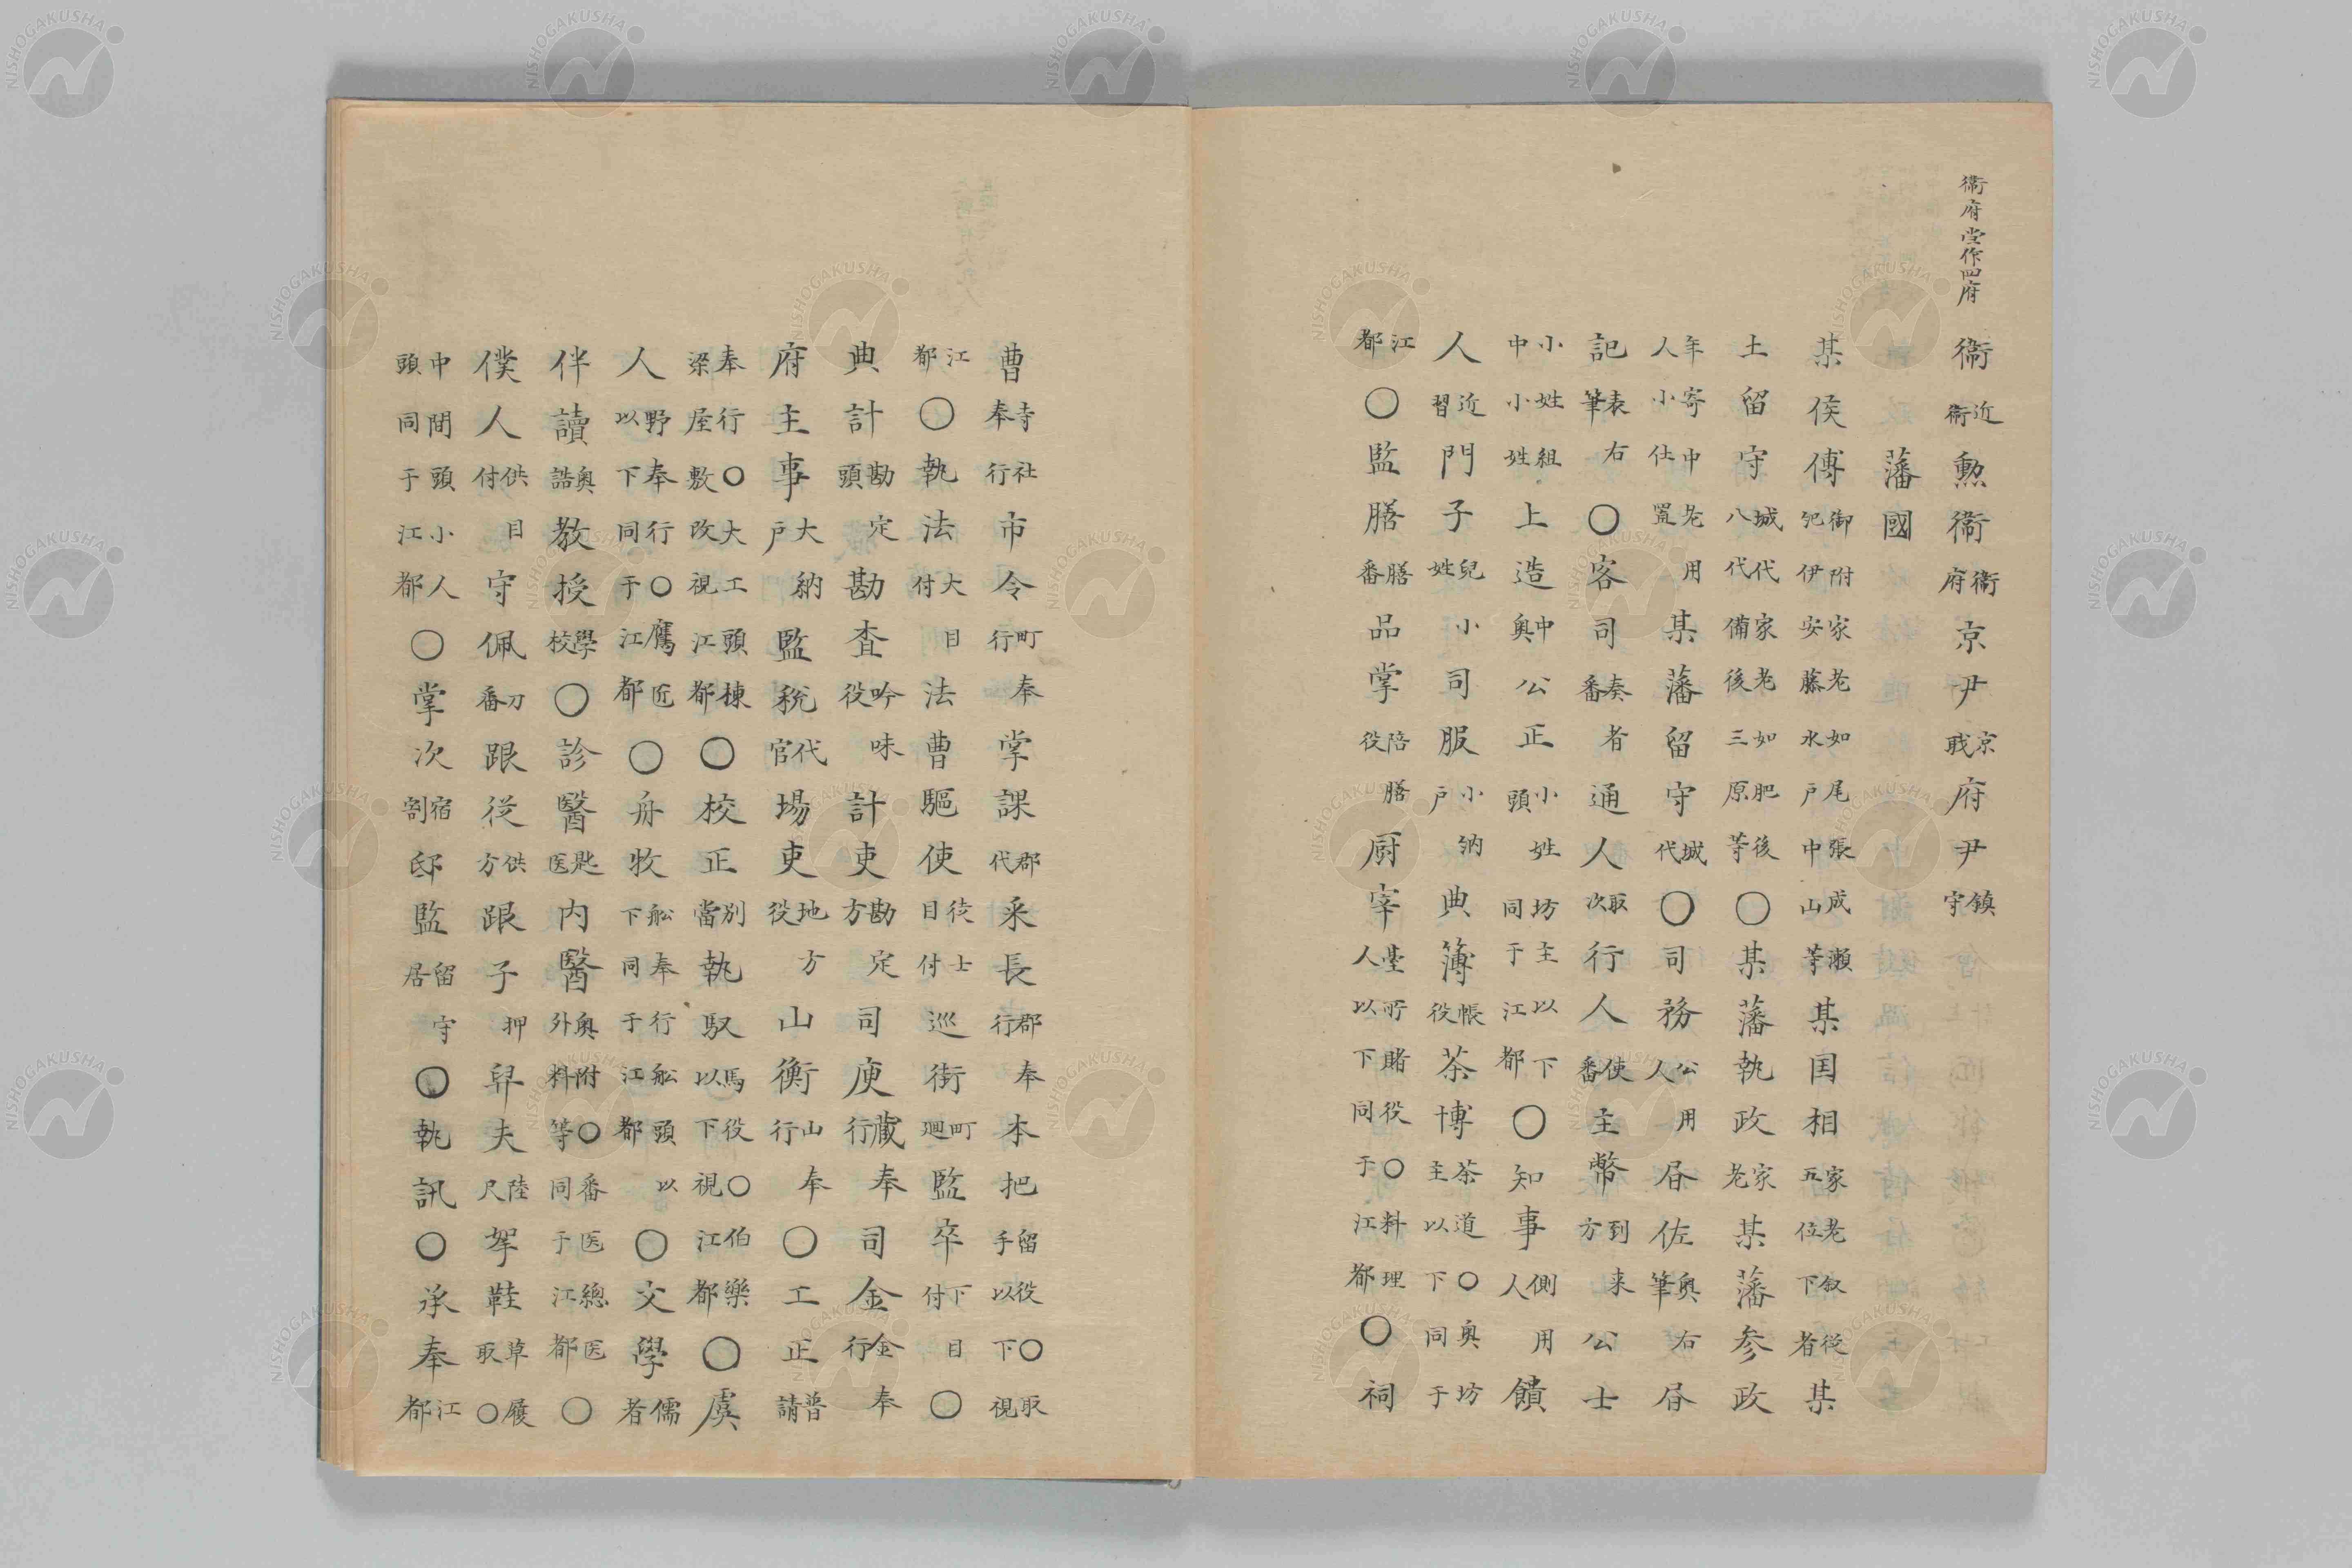 衞府當作四府
衞近衞勲衞衞府京尹京戝府尹鎮守
藩國
某侯傅御附家老如尾張成瀬紀伊安藤水戸中山等某国相家老叙従五位下者某
土留守城代家老如肥後八代備後三原等○某藩執政家老某藩参政
年寄中老用人小仕置某藩留守城代○司務公用人書佐奥右筆書
記表右筆○客司奏者番通人取次行人使番主幣到来方公士
小姓組中小姓上造中奥公正小姓頭坊主以下同于江都○知事側用人饋
人近習門子兒小姓司服小納戸典簿帳役茶博茶道○奥坊主以下同于
江都○監膳膳番品掌陪膳役厨宰臺所賭役○料理人以下同于江都○祠
曹寺社奉行市令町奉行掌課郡代采長郡奉行本把留役○取手以下視
江都○執法大目付法曹驅使徒士目付巡街町廻監卒下目付○
典計勘定頭勘査吟味役計吏勘定方司庾藏奉行司金金奉行
府主事大納戸監税代官場吏地方役山衡山奉行○工正普請
奉行○大工頭棟梁屋敷改視江都○校正別當執馭馬役○伯樂以下視江都○虞
人野奉行○鷹匠以下同于江都○舟牧舩奉行舩頭以下同于江都○文學儒者
伴讀奥詰教授學校○診醫匙医内醫奥附○番医總医外料等同于江都○
僕人供目付守佩刀番跟従供方跟子押舁夫陸尺挈鞋草履取○
中間頭小人頭同于江都○掌次宿割邸監留守居○執訊○承奉江都
NISHOGAKUSHA